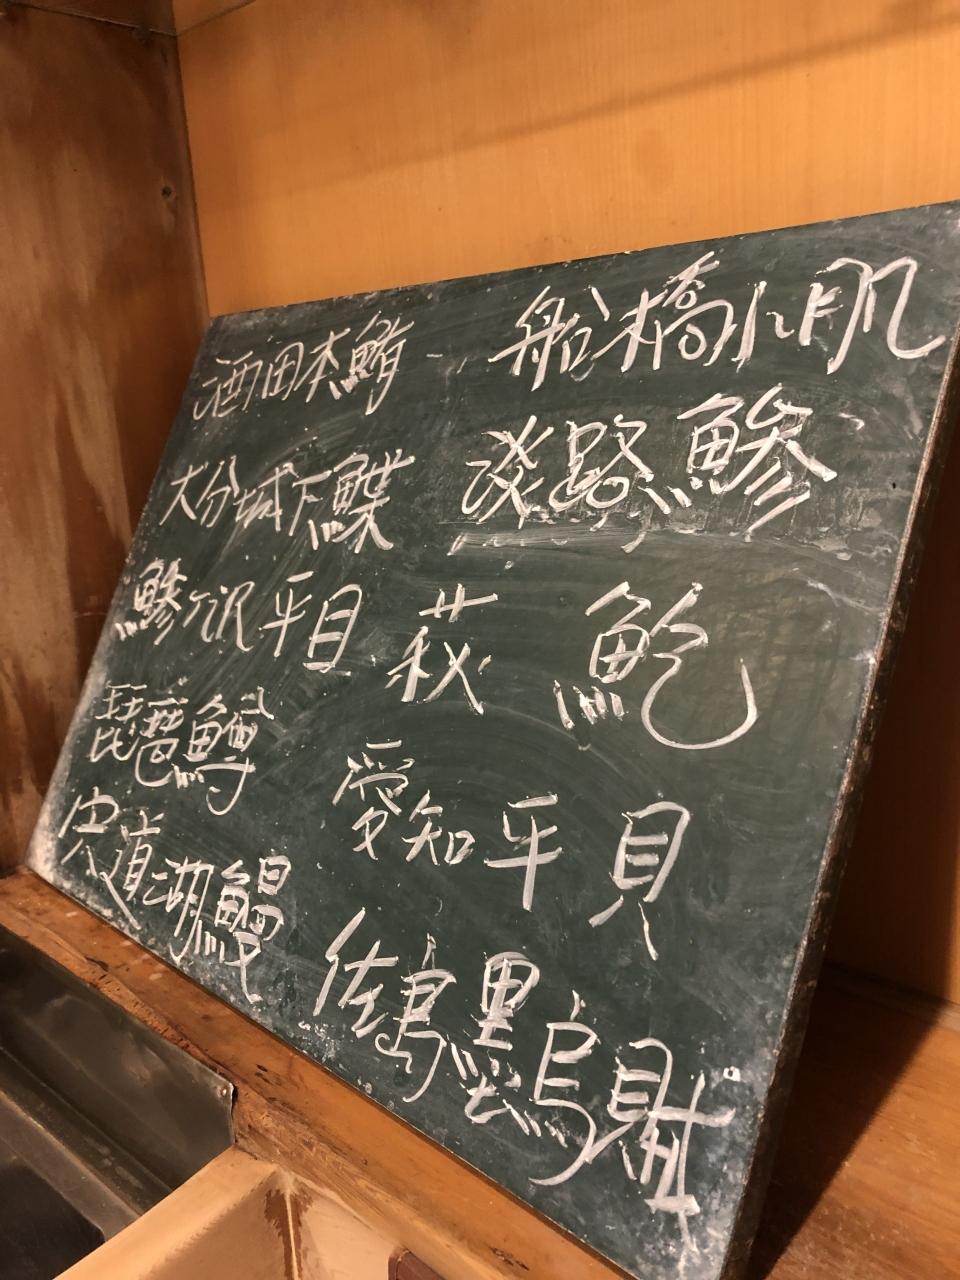 酒田本鮪
船橋小肌
大分城下鰈
淡路鯵
鯵ヶ沢平目
萩 鮑
琵琶鱒
愛知平貝
宍道湖鰻
佐島墨烏賊